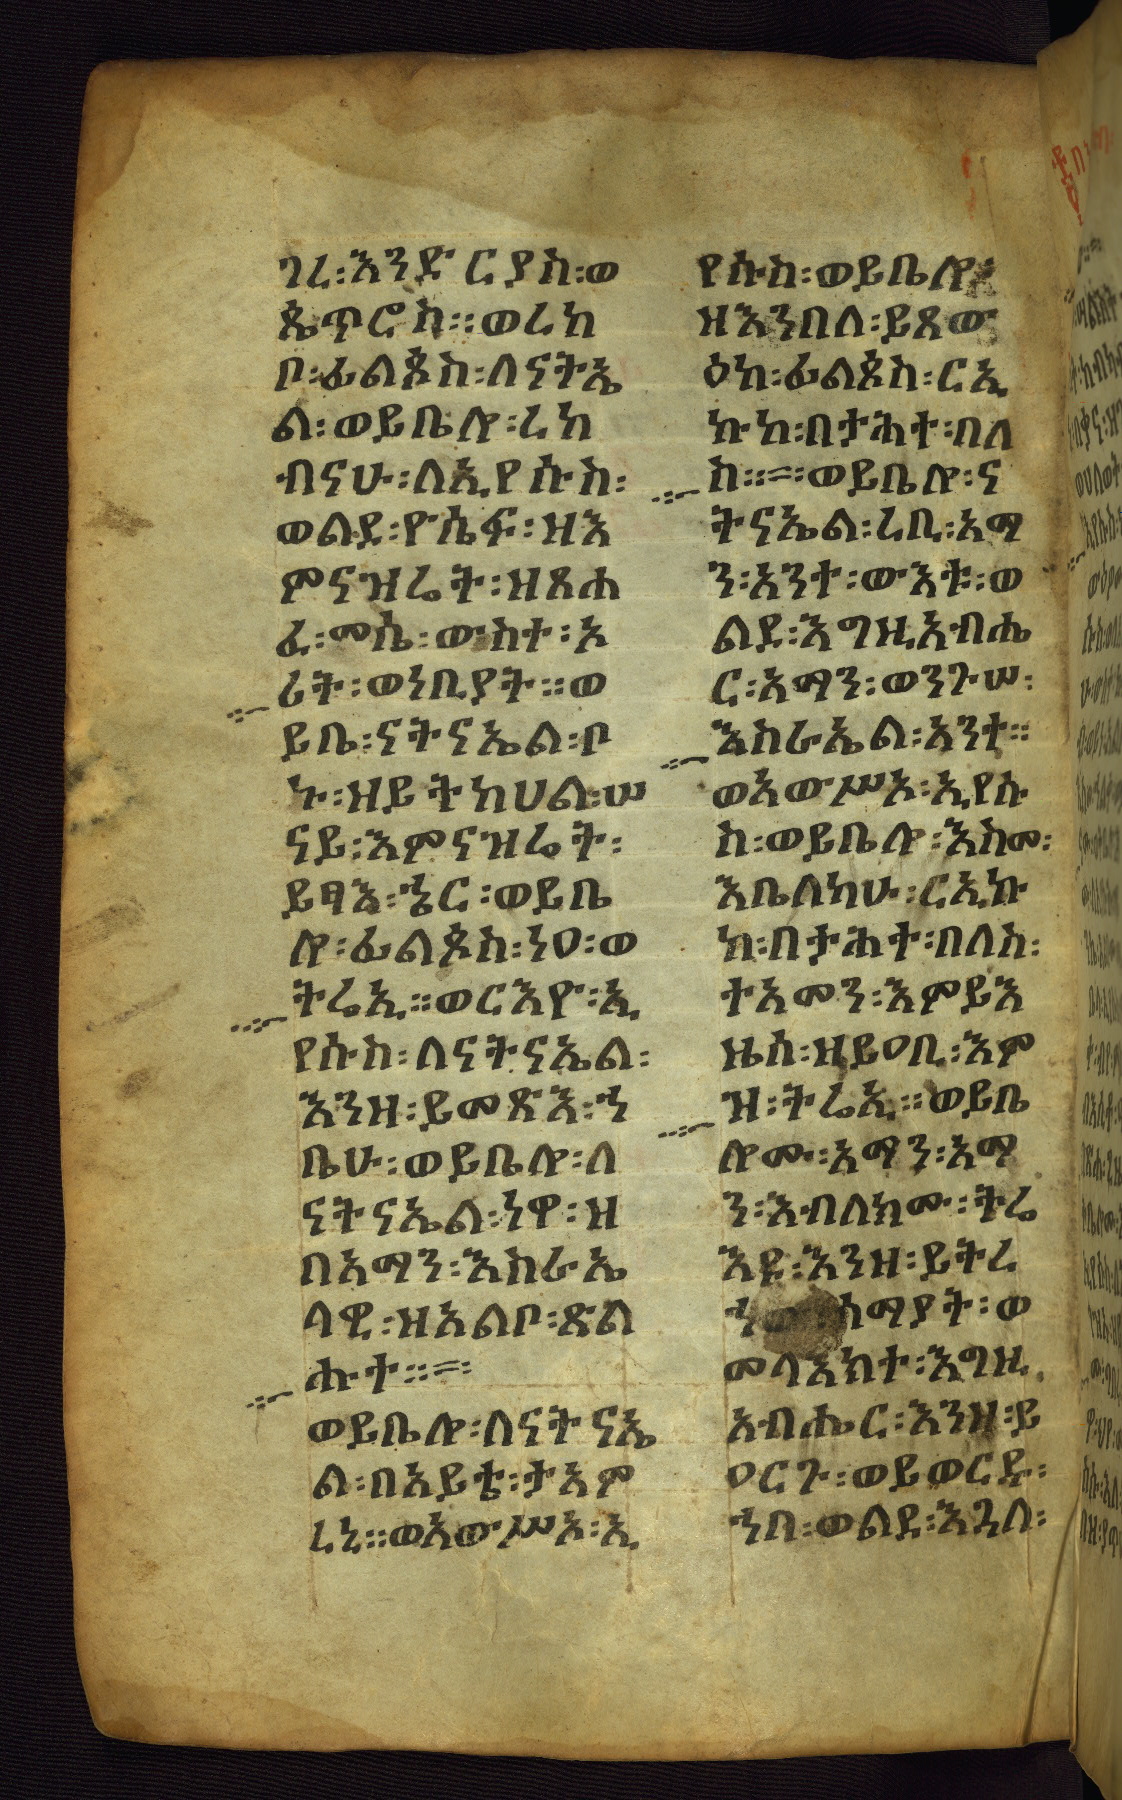 ገረ፡እንድርያስ፡ወ
ጴጥሮስ፡፡ወረከ
ቦ፡ፊልጶስ፡ለናትኤ
ል፡ወይቤሎ፡ረከ
ብናሁ፡ለኢየሱስ፡
ወልደ፡ዮሴፍ፡ዘእ
ምናዝሬት፡ዘጸሐ
ፈ፡ሙሴ፡ውስተ፡ኦ
ሪት፡ወነቢያት፡፡ወ
ይቤ፡ናትናኤል፡ቦ
ኑ፡ዘይትከሀል፡ሠ
ናይ፡እምናዝሬት፡
ይፃእ፡ኄር፡ወይቤ
ሎ፡ፊልጶስ፡ነዐ፡ወ
ትሬኢ፡፡ወርእዮ፡ኢ
የሱስ፡ለናትናኤል፡
እንዘ፡ይመጽእ፡ኀ
ቤሁ፡ወይቤሎ፡ለ
ናትናኤል፡ነዋ፡ዘ
በአማን፡እስራኤ
ላዊ፡ዘአልቦ፡ጽል
ሑት፡፡=፡
ወይቤሎ፡ለናትናኤ
ል፡በአይቴ፡ታአም
ረኒ፡፡ወአውሥአ፡ኢ
የሱስ፡ወይቤሎ፡
ዘእንበለ፡ይጸው
ዕከ፡ፊልጶስ፡ርኢ
ኩከ፡በታሕተ፡በለ
ስ፡፡=፡ወይቤሎ፡ና
ትናኤል፡ረቢ፡አማ
ን፡አንተ፡ውእቱ፡፡ወ
ልደ፡እግዚአብሔ
ር፡አማን፡ወንጉሠ፡
እስራኤል፡አንተ፡፡
ወአውሥአ፡ኢየሱ
ስ፡ወይቤሎ፡እስመ፡
እቤለከሁ፡ርኢኩ
ከ፡በታሕተ፡በለስ፡
ተአመን፡እምይእ
ዜሰ፡ዘይዐቢ፡እም
ዝ፡ትሬኢ፡፡ወይቤ
ሎሙ፡አማን፡አማ
ን፡እብለክሙ፡ትሬ
እዩ፡እንዘ፡ይትረ
ኀው፡ሰማያት፡ወ
መላእክተ፡እግዚ
አብሔር፡እንዘ፡ይ
ዐርጉ፡ወይወርዱ፡
ኀበ፡ወልደ፡እጓለ፡